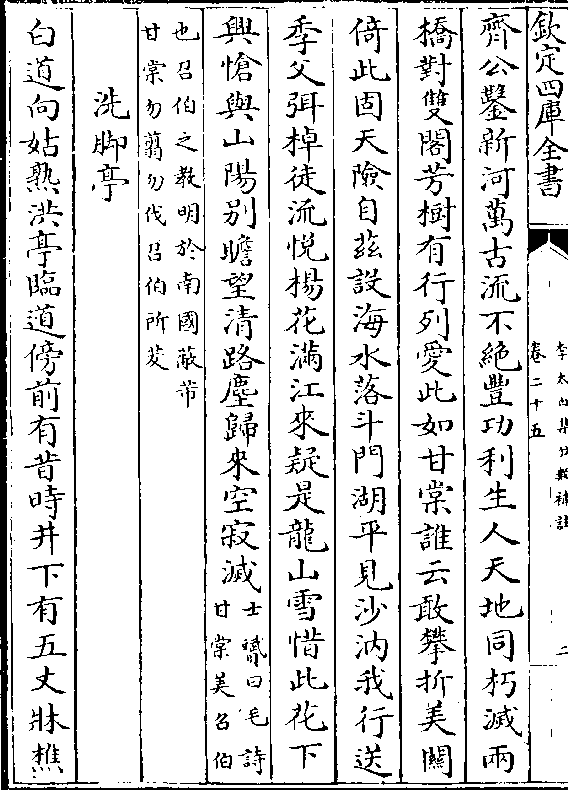 欽定四庫全書
李太白集分類補註
卷二十五
二
齊公鑿新河萬古流不絶豐功利生人天地同朽滅兩
橋對雙閣芳樹有行列愛此如甘棠誰云敢攀折美關
倚此固天險自兹設海水落斗門湖平見沙汭我行送
季父弭棹徒流悦楊花滿江來疑是龍山雪惜此花下
興愴與山陽别瞻望清路塵歸來空寂滅
士贇曰毛詩
甘棠美召伯
也召伯之教明於南國蔽芾
甘棠勿翦勿伐召伯所茇
洗脚亭
白道向姑熟洪亭臨道傍前有昔時井下有五丈牀樵